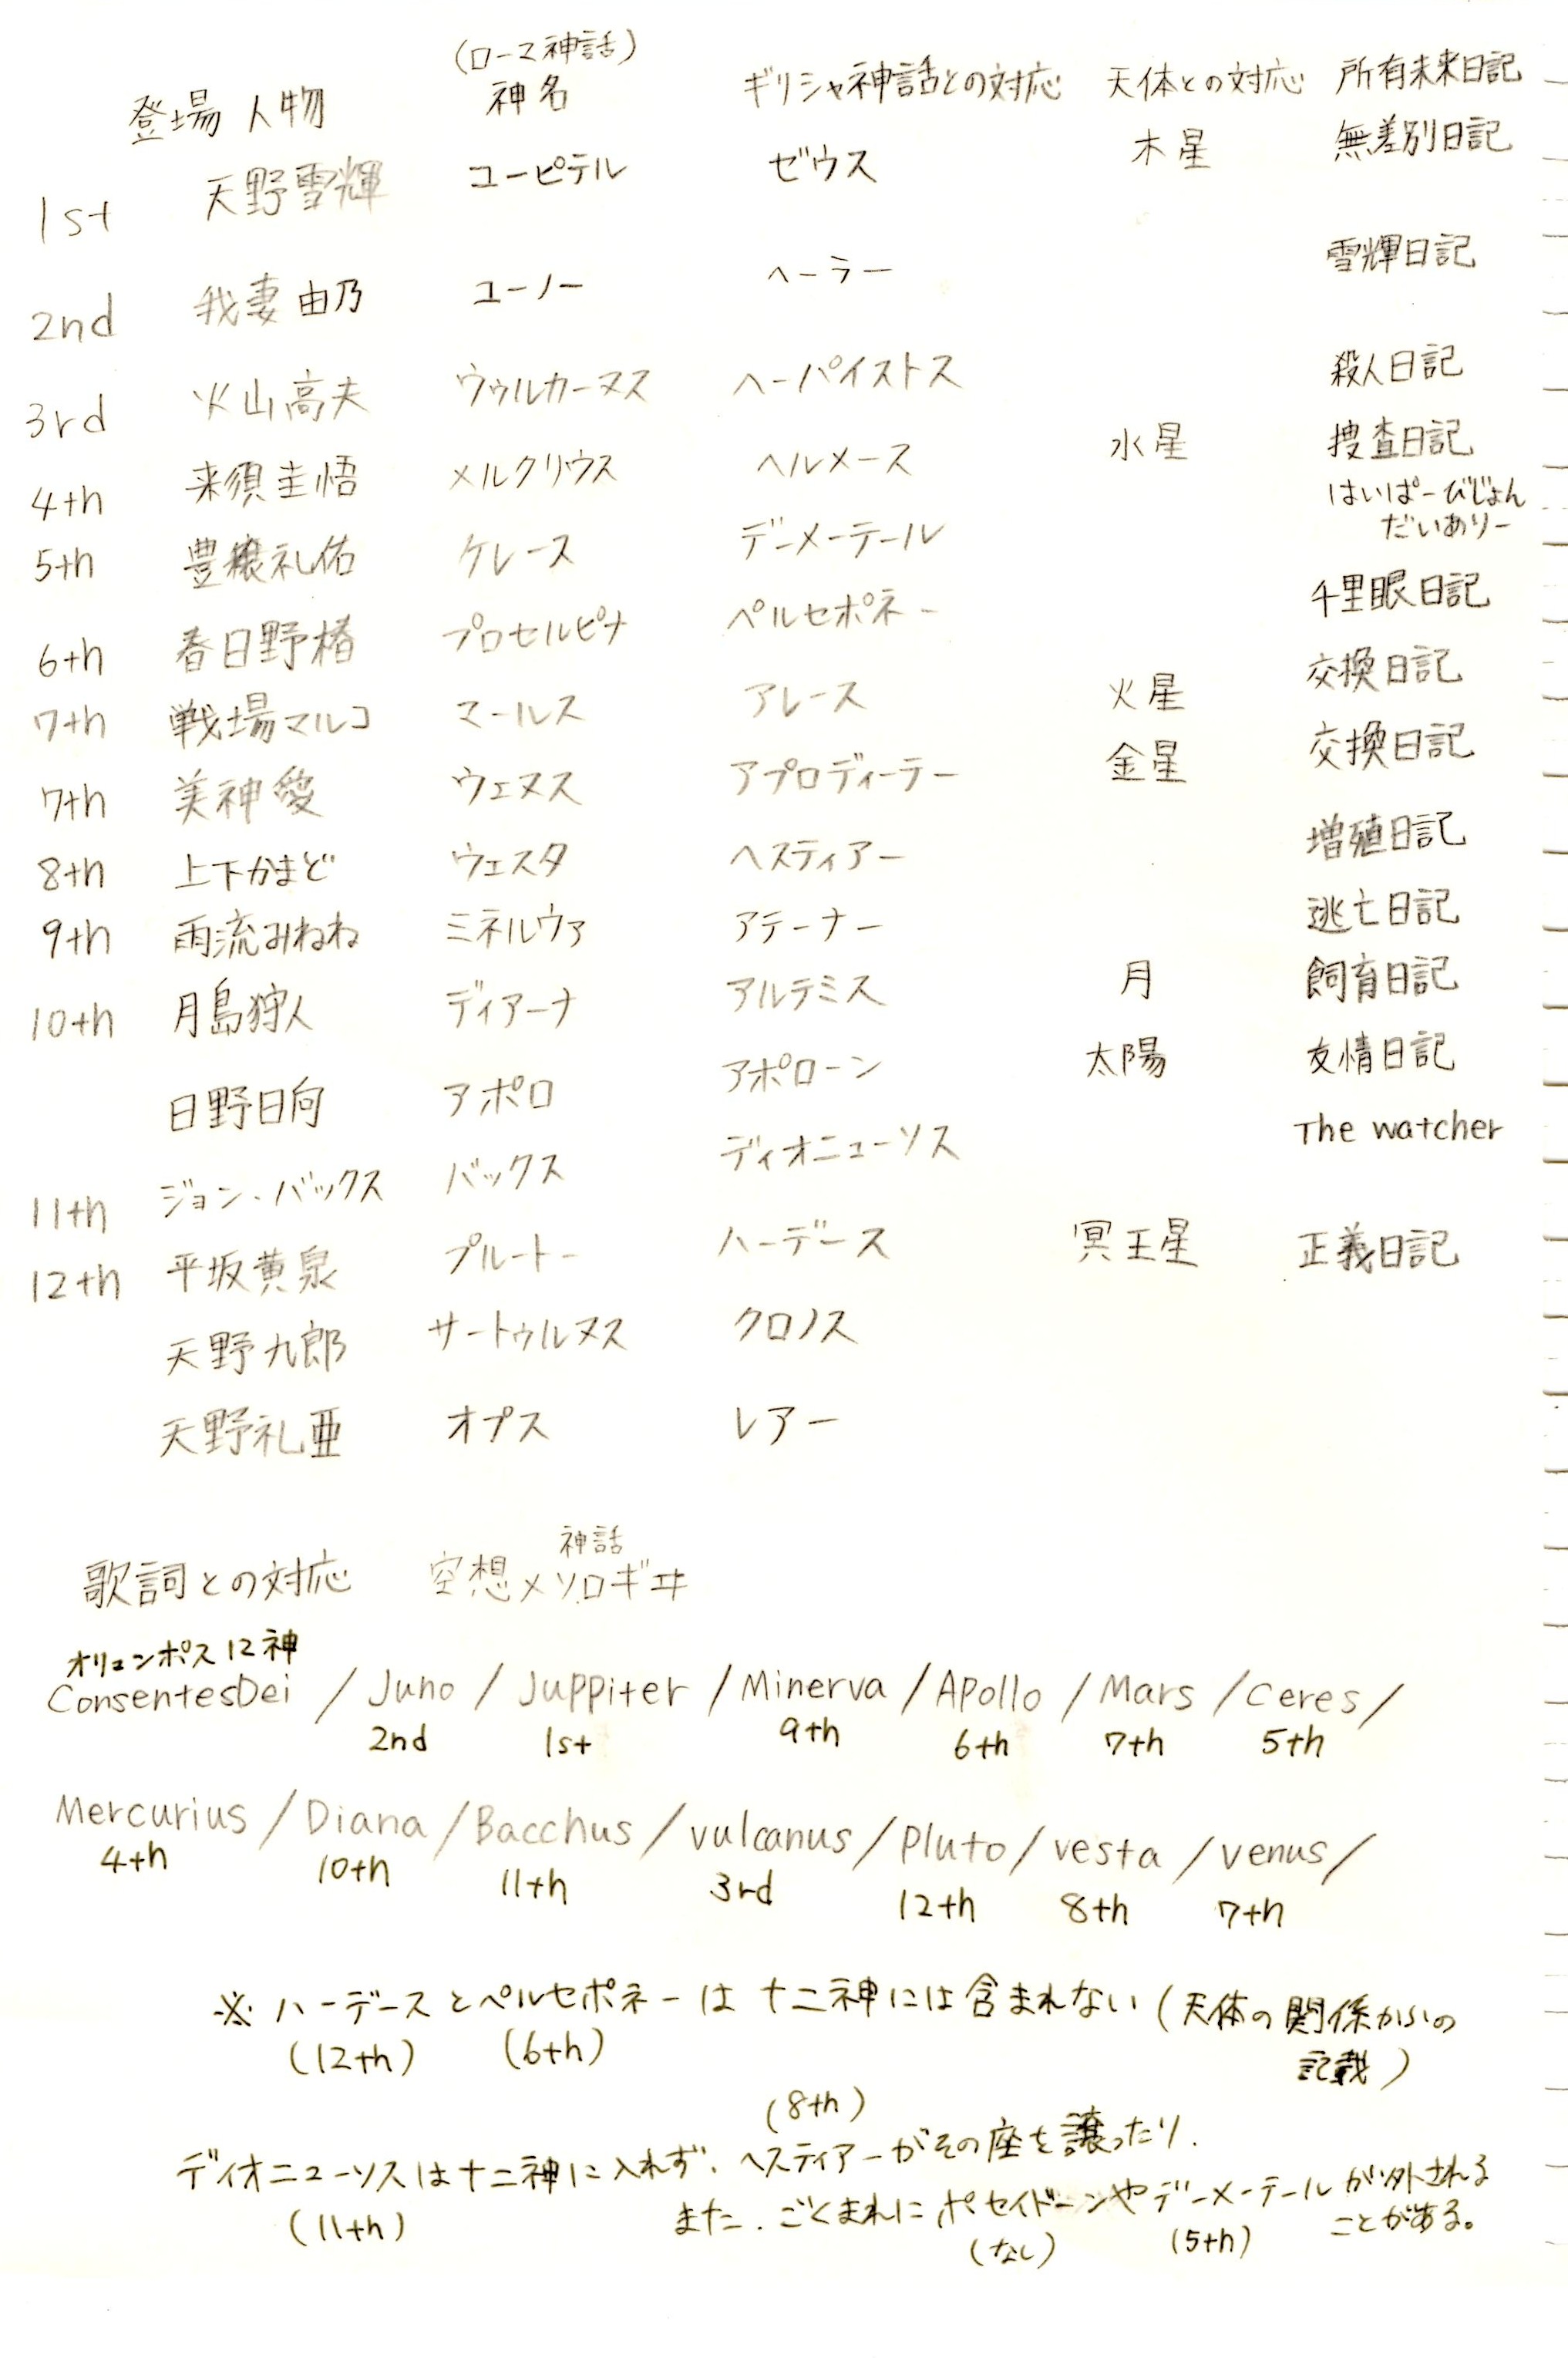 (ローマ神話)
登場人物 神名 ギリシャ神話との対応 天体との対応 所有未来日記
1st 天野雪輝 ユーピテル ゼウス 木星 無差別日記
2nd 我妻由乃 ユーノー ヘーラー 雪輝日記
3rd 火山高夫 ウゥルカーヌス ヘーパイストス 殺人日記
4th 来須圭悟 メルクリウス ヘルメース 水星 捜査日記
5th 豊穣礼佑 ケレース デーメーテール はいぱーびじょん
だいありー
6th 春日野椿 プロセルピナ ペルセポネー 千里眼日記
7th 戦場マルコ マールス アレース 火星 交換日記
7th 美神愛 ウェヌス アプロディーテー 金星 交換日記
8th 上下かまど ウェスタ ヘスティアー 増殖日記
9th 雨流みねね ミネルヴァ アテーナー 逃亡日記
10th 月島狩人 ディアーナ アルテミス 月 飼育日記
日野日向 アポロ アポローン 太陽 友情日記
11th ジョン・バックス バックス ディオニューソス The watcher
12th 平坂黄泉 プルートー ハーデース 冥王星 正義日記
天野九郎 サートゥルヌス クロノス
天野礼亜 オプス レアー
神話
歌詞との対応 空想メソロギヰ
オリュンポス12神
ConsentesDei / Juno / Juppiter / Minerva / Apollo / Mars / Ceres /
2nd 1st 9th 6th 7th 5th
Mercurius / Diana / Bacchus / vulcanus / pluto / vesta / venus /
4th 10th 11th 3rd 12th 8th 7th
※ ハーデースとペルセポネーは十二神には含まれない(天体の関係からの
(12th) (6th) 記載)
(8th)
ディオニューソスは十二神に入れず、ヘスティアーがその座を譲ったり.
(11th) また、ごくまれにポセイドーンやデーメーテールが外される
(なし) (5th) ことがある。